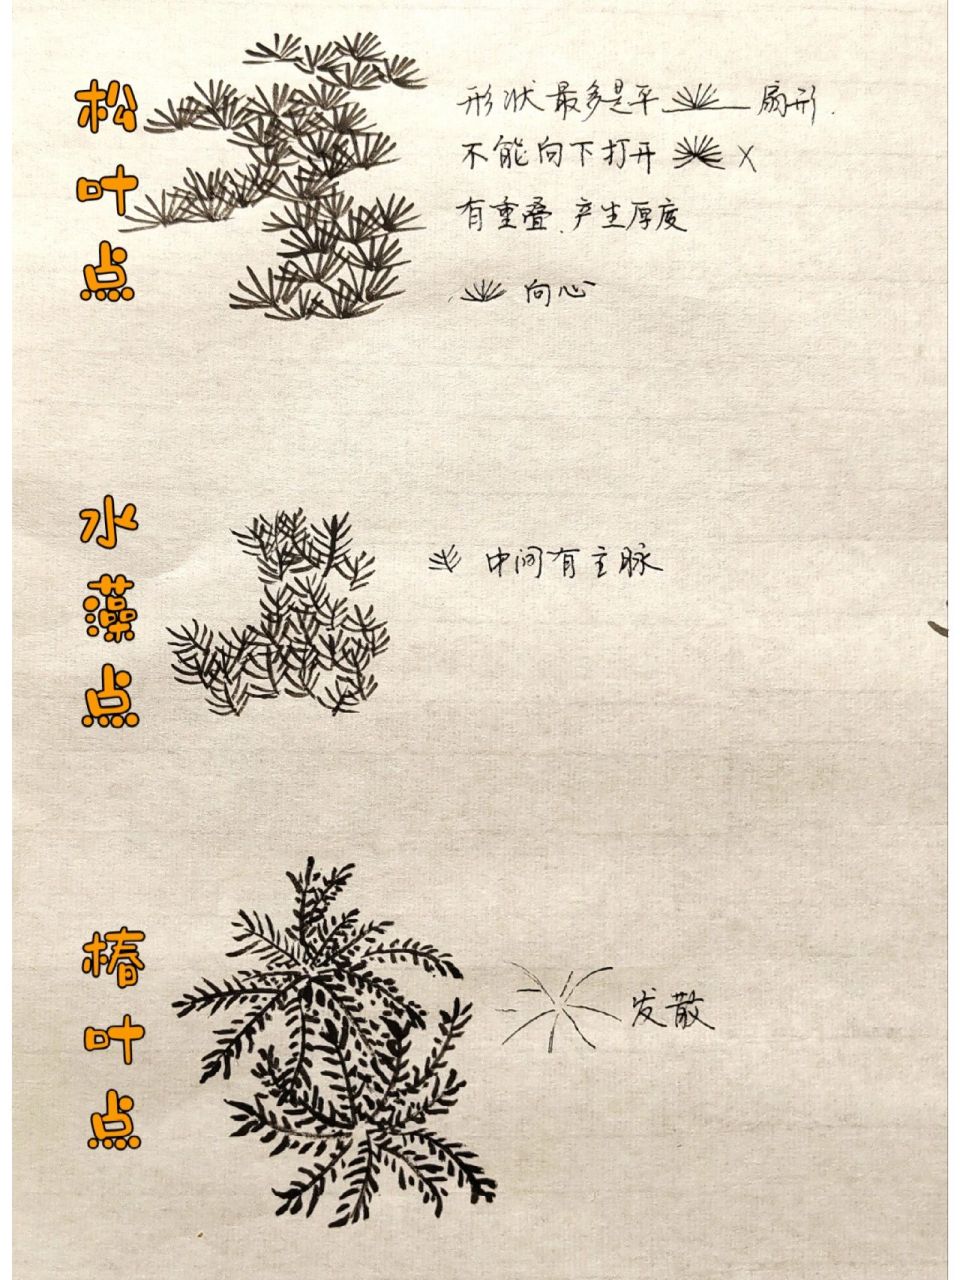 松叶点
形状最多是平 扇形.
不能向下打开 X
有重叠、产生厚度
向心
水藻点
中间有主脉
椿叶点
发散